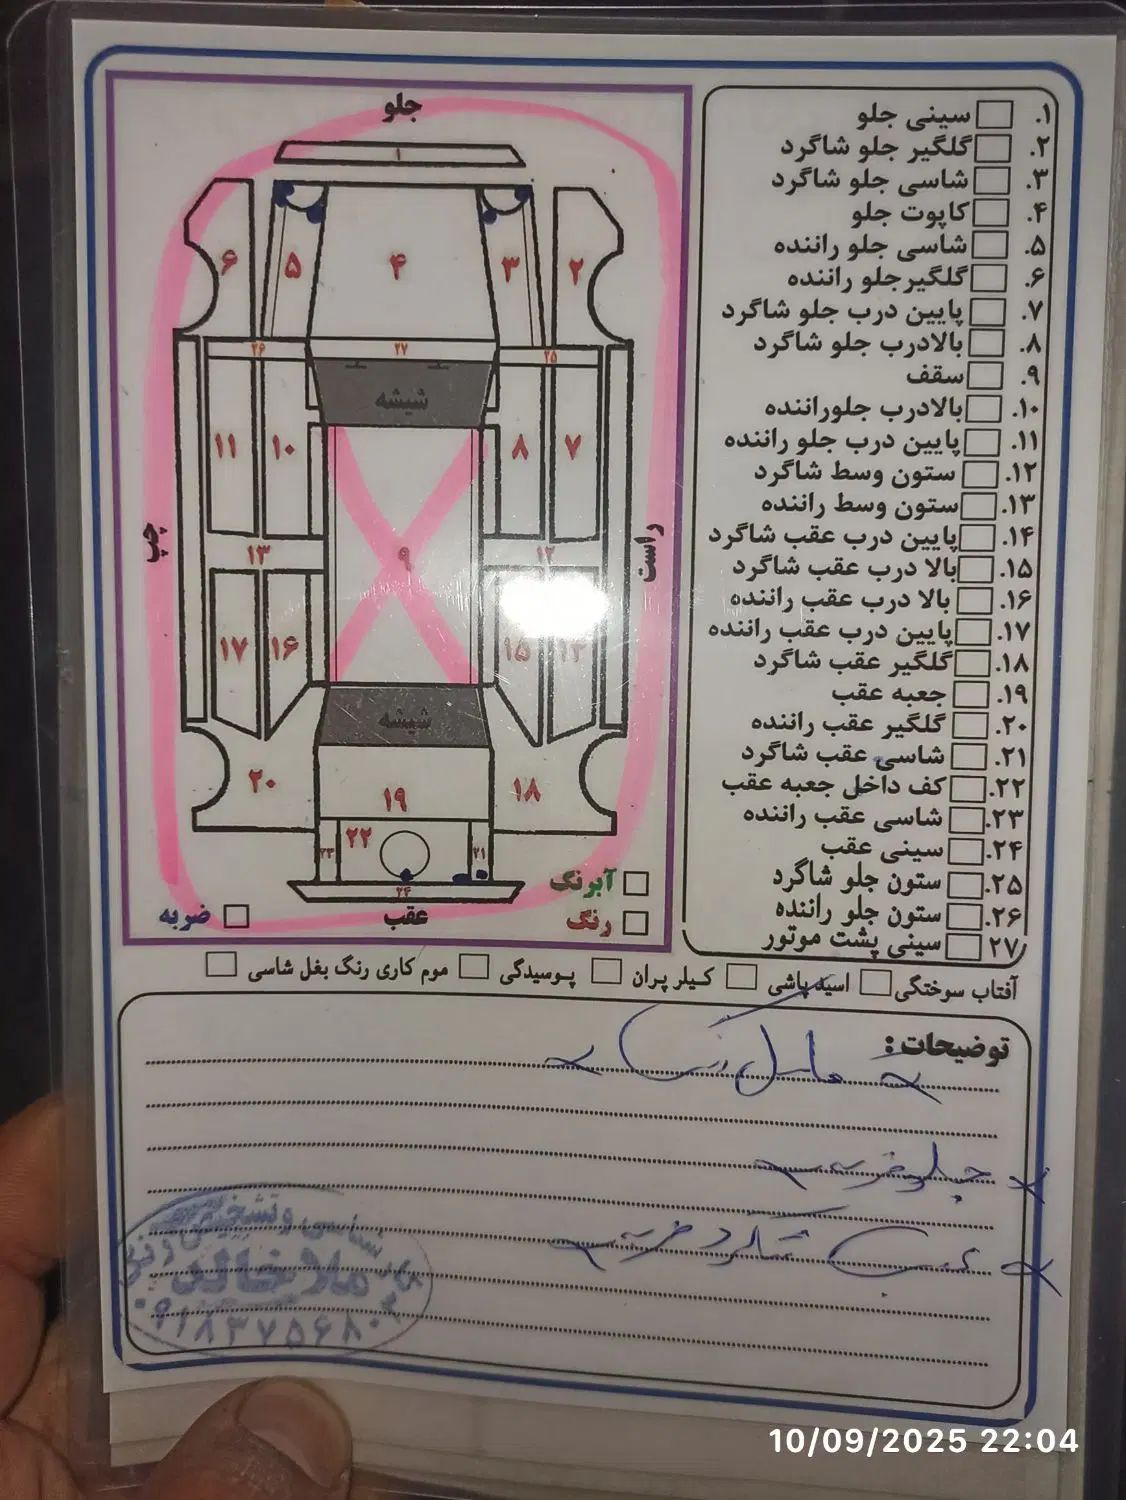 جلو
۱
۶
۵
۴
۳
۲
۲۶
۲۷
۲۵
شیشه
۱۱
۱۰
۸
۷
چپ
راست
۹
۱۳
۱۲
۱۷
۱۶
۱۵
شیشه
۲۰
۱۹
۱۸
۲۳
۲۲
۲۱
۲۴
عقب
آبرنگ
رنگ
ضربه
۱. سینی جلو
۲. گلگیر جلو شاگرد
۳. شاسی جلو شاگرد
۴. کاپوت جلو
۵. شاسی جلو راننده
۶. گلگیرجلو راننده
۷. پایین درب جلو شاگرد
۸. بالادرب جلو شاگرد
۹. سقف
۱۰. بالادرب جلوراننده
۱۱. پایین درب جلو راننده
۱۲. ستون وسط شاگرد
۱۳. ستون وسط راننده
۱۴. پایین درب عقب شاگرد
۱۵. بالا درب عقب شاگرد
۱۶. بالا درب عقب راننده
۱۷. پایین درب عقب راننده
۱۸. گلگیر عقب شاگرد
۱۹. جعبه عقب
۲۰. گلگیر عقب راننده
۲۱. شاسی عقب شاگرد
۲۲. کف داخل جعبه عقب
۲۳. شاسی عقب راننده
۲۴. سینی عقب
۲۵. ستون جلو شاگرد
۲۶. ستون جلو راننده
۲۷ سینی پشت موتور
آفتاب سوختگی اسید پاشی کیلر پران پوسیدگی موم کاری رنگ بغل شاسی
توضیحات:
کامل رنگ
جلو ضربه
عقب شاگرد ضربه
ملا خالد
10/09/2025 22:04